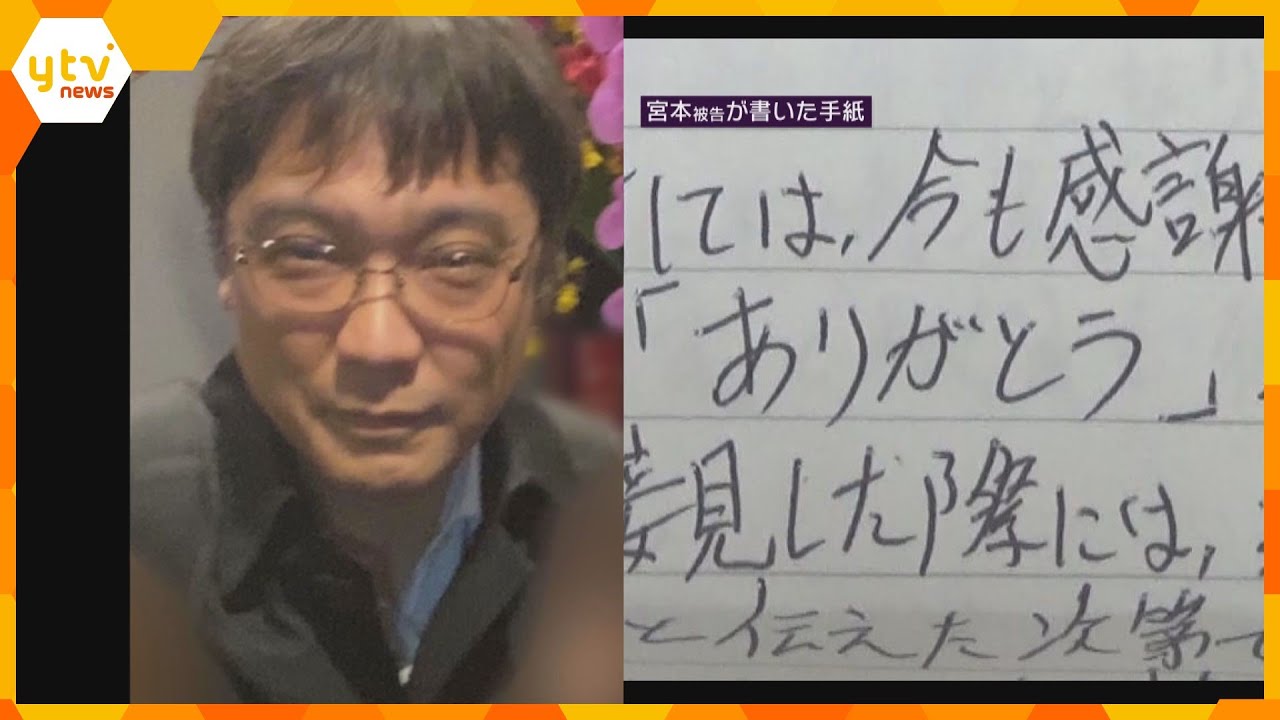 ytv
news
宮本被告が書いた手紙
しては,今も感謝
「ありがとう」
接見した際には,
と伝えた次第で